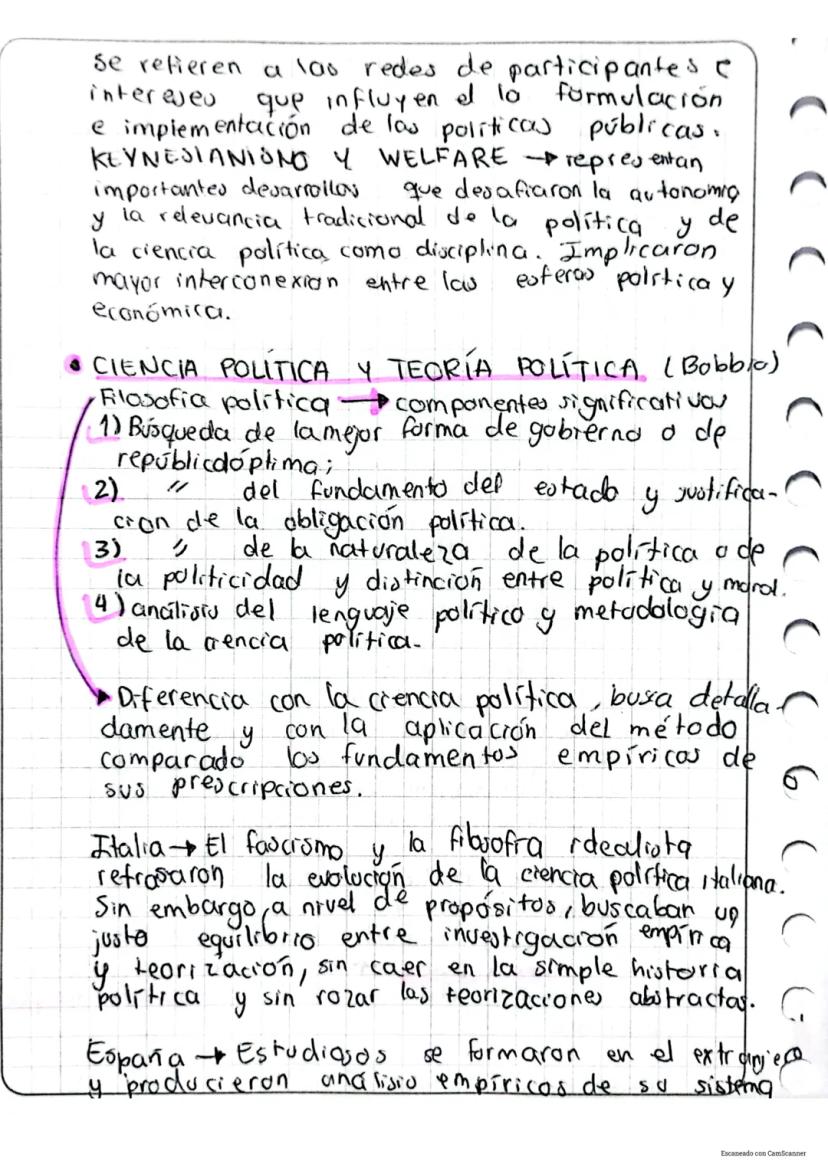 se refieren a las redes de participantes e
intereses que influyen el la formulación
e implementación de las políticas públicas.
KEYNESIANISMO Y WELFARE → representan
importantes desarrollos que desafiaron la autonomía
y la relevancia tradicional de la política y de
la ciencia política como disciplina. Implicaron
mayor interconexion entre las esferas política y
económica.
• CIENCIA POLÍTICA Y TEORÍA POLÍTICA (Bobbio)
Filosofía política → componentes significativos
1) Búsqueda de la mejor forma de gobierno o de
república óptima;
2) " del fundamento del estado y justifica-
cion de la obligación política.
3) " de la naturaleza de la política o de
la politicidad y distinción entre política y moral.
4) análisis del lenguaje político y metodología
de la ciencia política.
Diferencia con la ciencia política, busca detalla-
damente y con la aplicación del método
comparado los fundamentos empíricos de
sus prescripciones.
Italia → El fascismo y la filosofía idealista
retrasaron la evolución de la ciencia política italiana.
Sin embargo, a nivel de propósitos, buscaban un
justo equilibrio entre investigación empírica
y teorización, sin caer en la simple historia
política y sin rozar las teorizaciones abstractas.
España → Estudiosos se formaron en el extranjero
y producieron análisis empíricos de su sistema
Escaneado con CamScanner